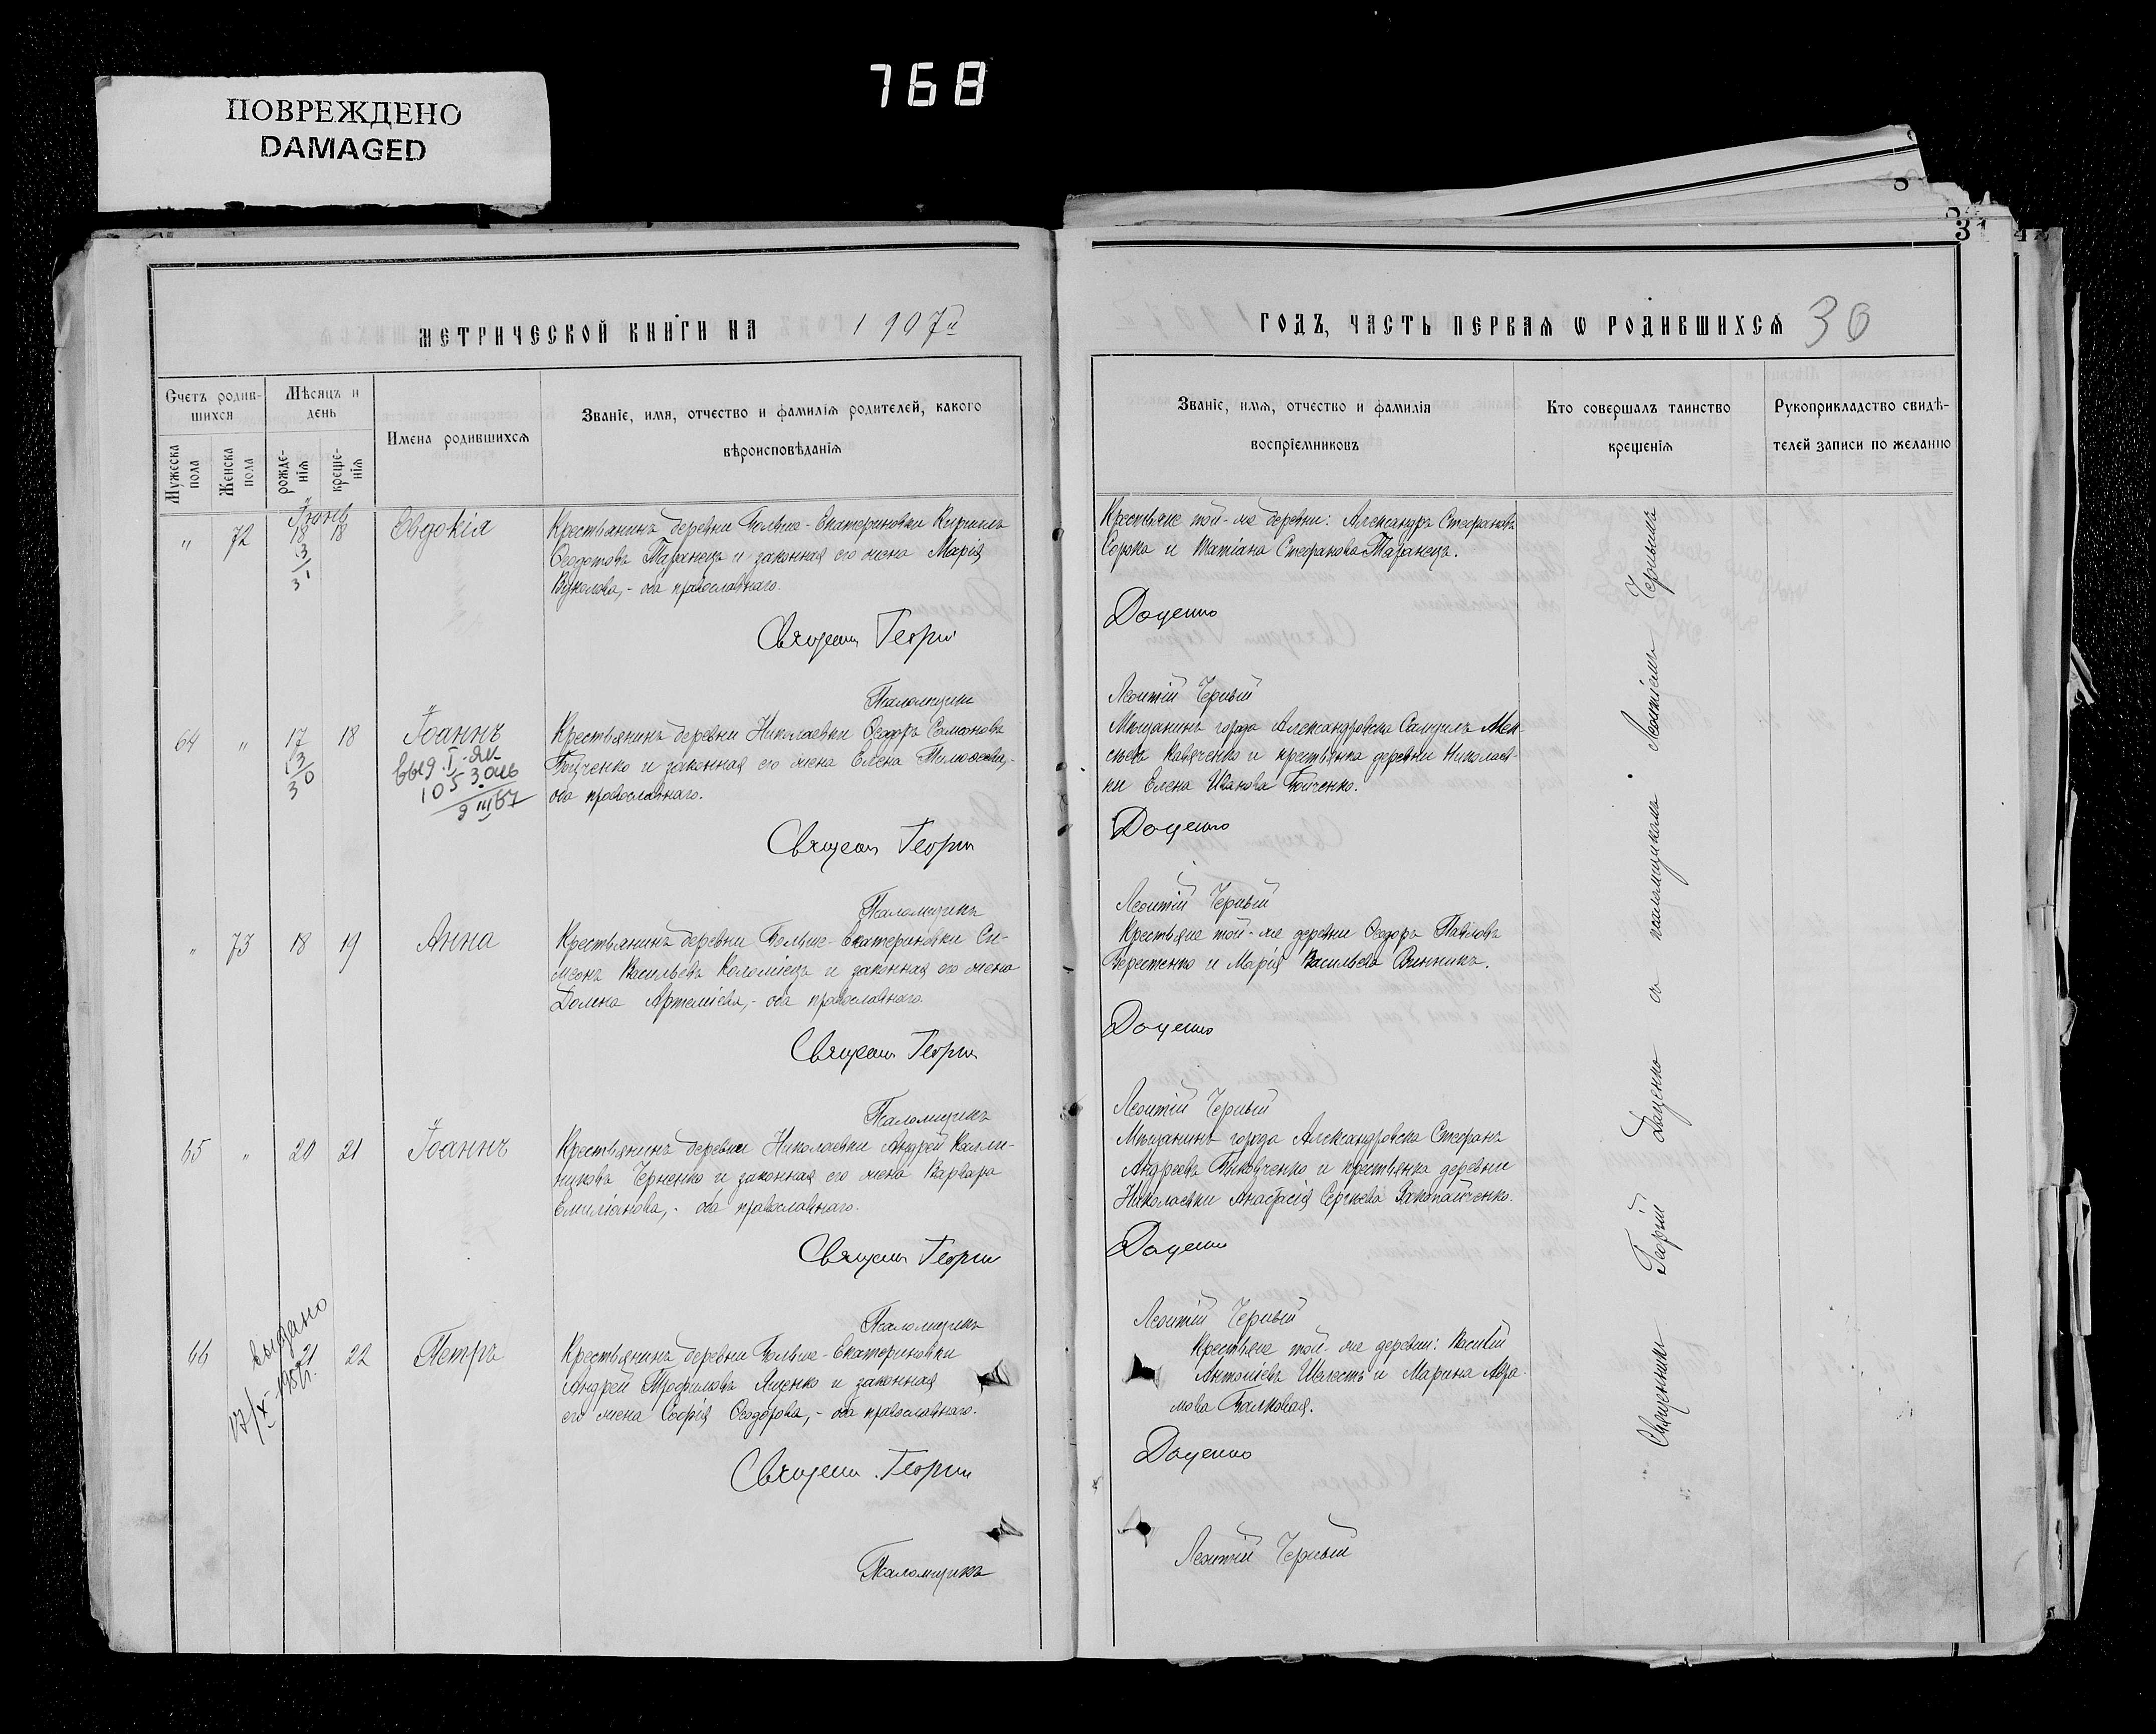 768
ПОВРЕЖДЕНО
DAMAGED
31
МЕТРИЧЕСКОЙ КНИГИ НА 1907й
ГОДЪ, ЧАСТЬ ПЕРВАЯ Ѡ РОДИВШИХСЯ 30
Счетъ родив-
шихся
Мужеска пола
Женска пола
Мѣсяцъ и
день
рожде-
нія
креще-
нія
Имена родившихся
Званіе, имя, отчество и фамилія родителей, какого
вѣроисповѣданія
Званіе, имя, отчество и фамилія
воспріемниковъ
Кто совершалъ таинство
крещенія
Рукоприкладство свидѣ-
телей записи по желанію
" 72 18 18 Евдокія
3
31
Крестьянинъ деревни Больше-Екатериновки Кириллъ
Ѳеодотовъ Таранецъ и законная его жена Марія
Вуколова, - оба православнаго.
Священ Георгій
Псаломщикъ
Крестьяне той-же деревни: Александръ Стефановъ
Сорока и Татіана Стефанова Таранецъ.
Доценко
Леонтій Черный
64 " 17 18 Іоаннъ
13
30
выд. I-ЯИ
9 III 67
Крестьянинъ деревни Николаевки Ѳеодоръ Самсоновъ
Бойченко и законная его жена Елена Тимоѳеева,-
оба православнаго.
Священ Георгій
Псаломщикъ
Мѣщанинъ города Александровска Самуилъ
и крестьянка деревни Николаев-
ки Елена Иванова Бойченко.
Доценко
Леонтій Черный
" 73 18 19 Анна
Крестьянинъ деревни Больше-Екатериновки Си-
меонъ Васильевъ Коломіецъ и законная его жена
Домна Артеміева, - оба православнаго.
Священ Георгій
Псаломщикъ
Крестьяне той-же деревни Ѳеодоръ Павловъ
Берестенко и Марія Васильева Винникъ.
Доценко
Леонтій Черный
65 " 20 21 Іоаннъ
Крестьянинъ деревни Николаевки Андрей Калли-
никовъ Черненко и законная его жена Варвара
Емиліанова, - оба православнаго.
Священ Георгій
Псаломщикъ
Мѣщанинъ города Александровска Стефанъ
Андреевъ и крестьянка деревни
Николаевки Анастасія Сергѣева Закопайченко.
Доценко
Леонтій Черный
66 21 22 Петръ
выдано
Крестьянинъ деревни Больше-Екатериновки
Андрей Трофимовъ Яценко и законная
его жена Софія Ѳеодорова, - оба православнаго.
Священ. Георгій
Псаломщикъ
Крестьяне той-же деревни: Василій
Антоніевъ Шелестъ и Марина Авра-
мова Балковая.
Доценко
Леонтій Черный
Священникъ Георгій Доценко съ псаломщикомъ Леонтіемъ Чернымъ